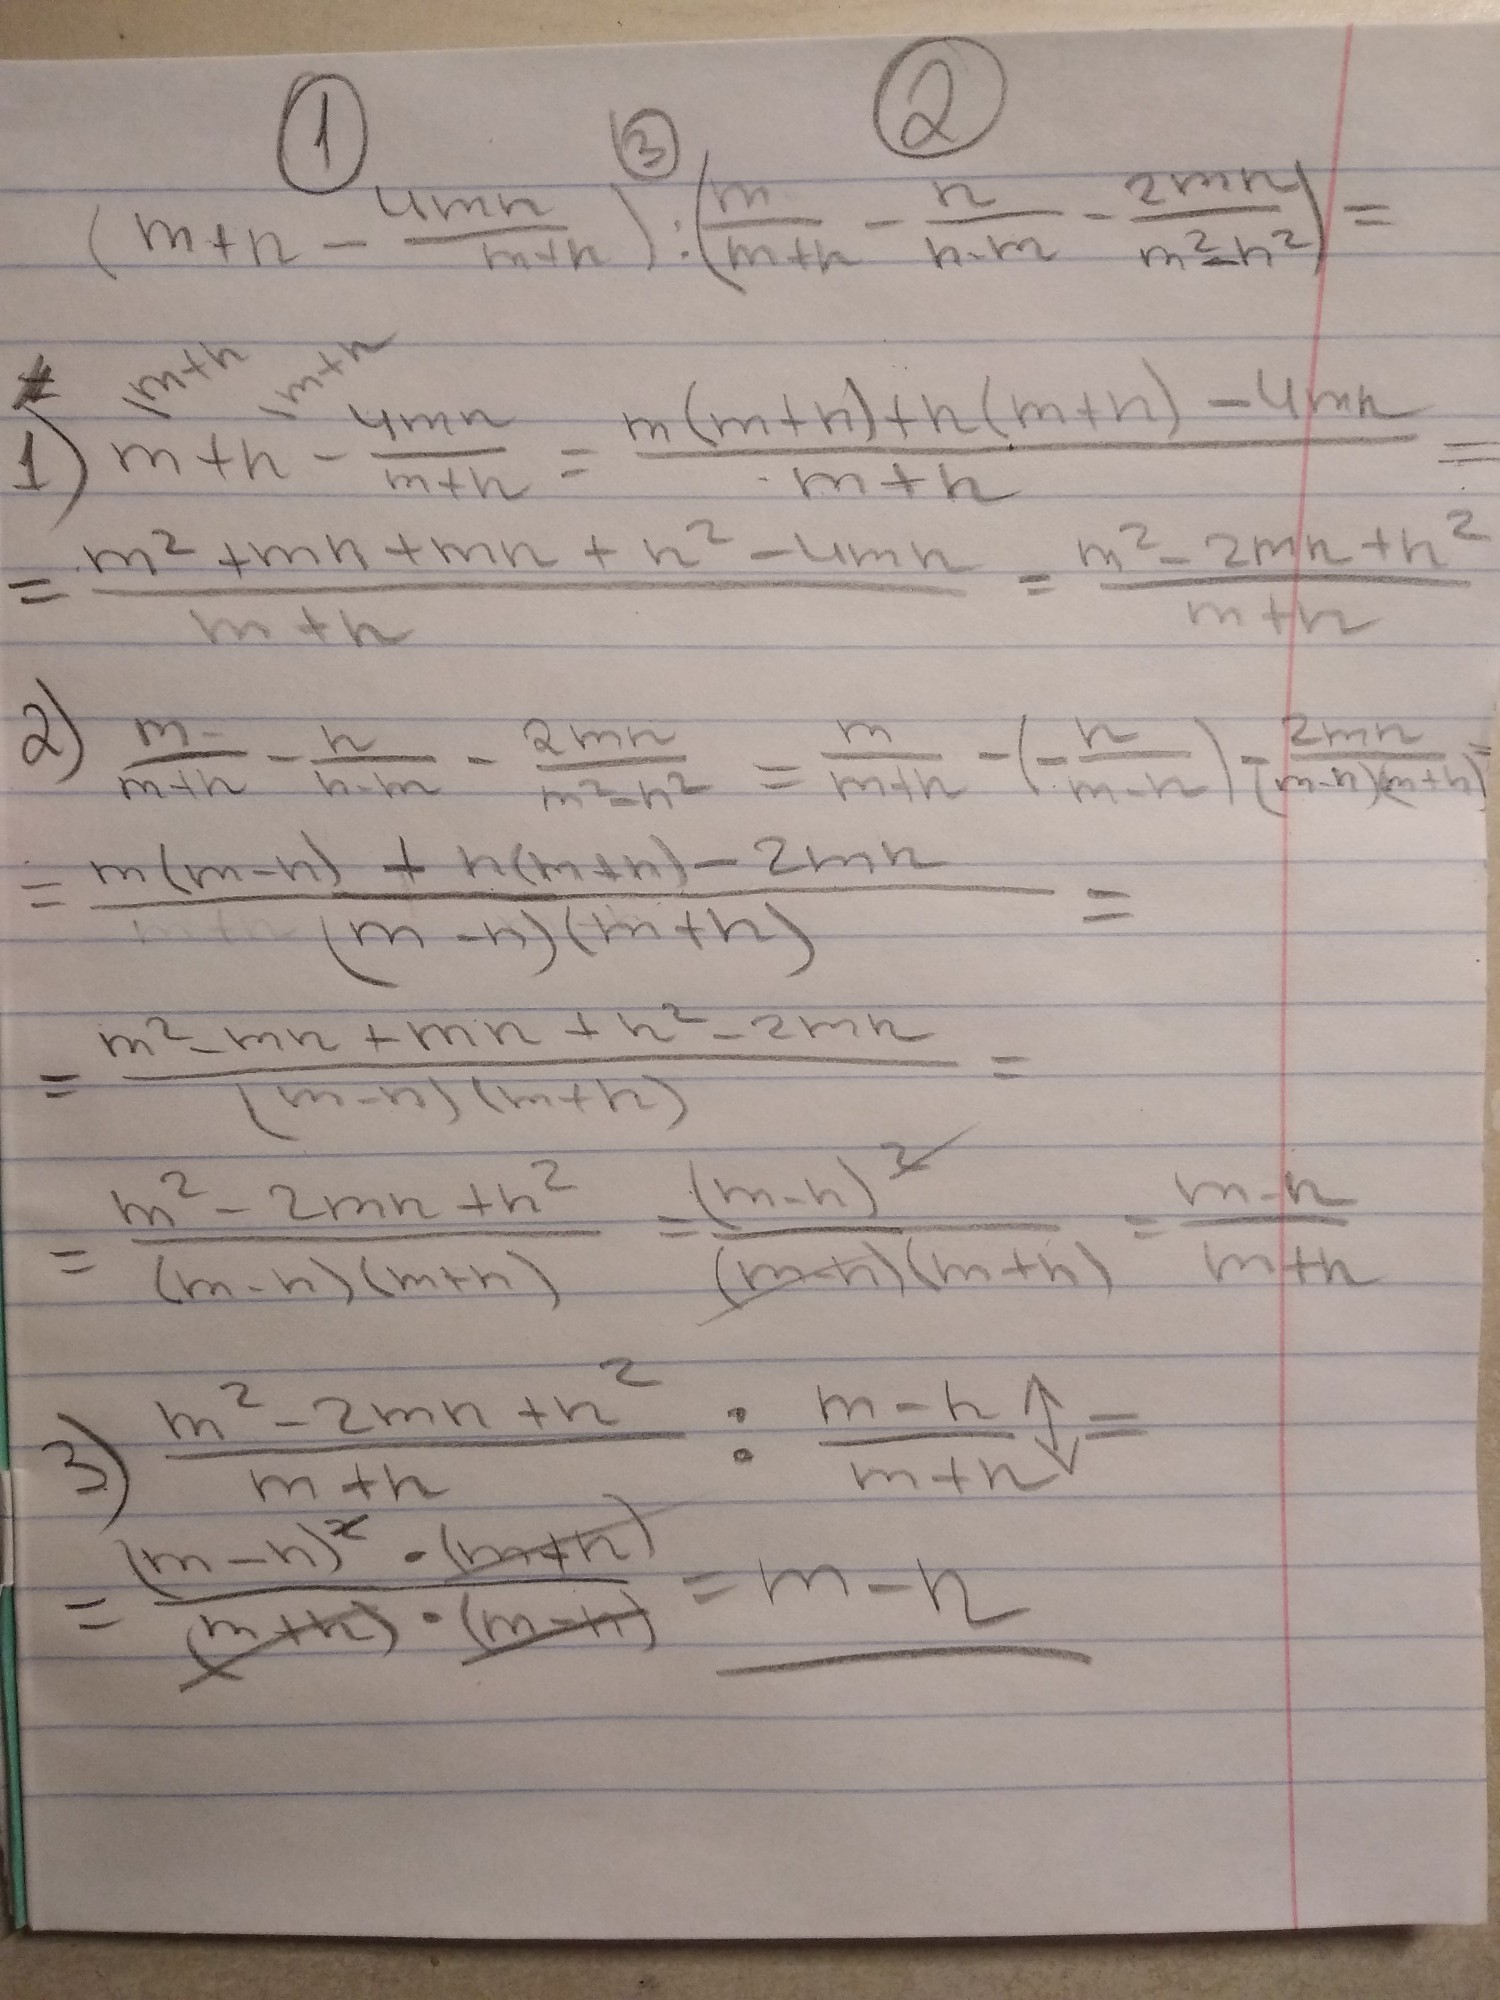 ① ③ ②
(m+n - 4mn/(m+n)) : (m/(m+n) - n/(n-m) - 2mn/(m²-n²)) =
m+n m+n
1) m+n - 4mn/(m+n) = (m(m+n)+n(m+n)-4mn)/(m+n) =
= (m²+mn+mn+n²-4mn)/(m+n) = (m²-2mn+n²)/(m+n)
2) m/(m+n) - n/(n-m) - 2mn/(m²-n²) = m/(m+n) - (-n/(m-n)) - 2mn/((m-n)(m+n)) =
= (m(m-n) + n(m+n) - 2mn)/((m-n)(m+n)) =
= (m²-mn+mn+n²-2mn)/((m-n)(m+n)) =
= (m²-2mn+n²)/((m-n)(m+n)) = (m-n)²/((m-n)(m+n)) = (m-n)/(m+n)
3) (m²-2mn+n²)/(m+n) : (m-n)/(m+n) ↕ =
= ((m-n)²·(m+n))/((m+n)·(m-n)) = m-n